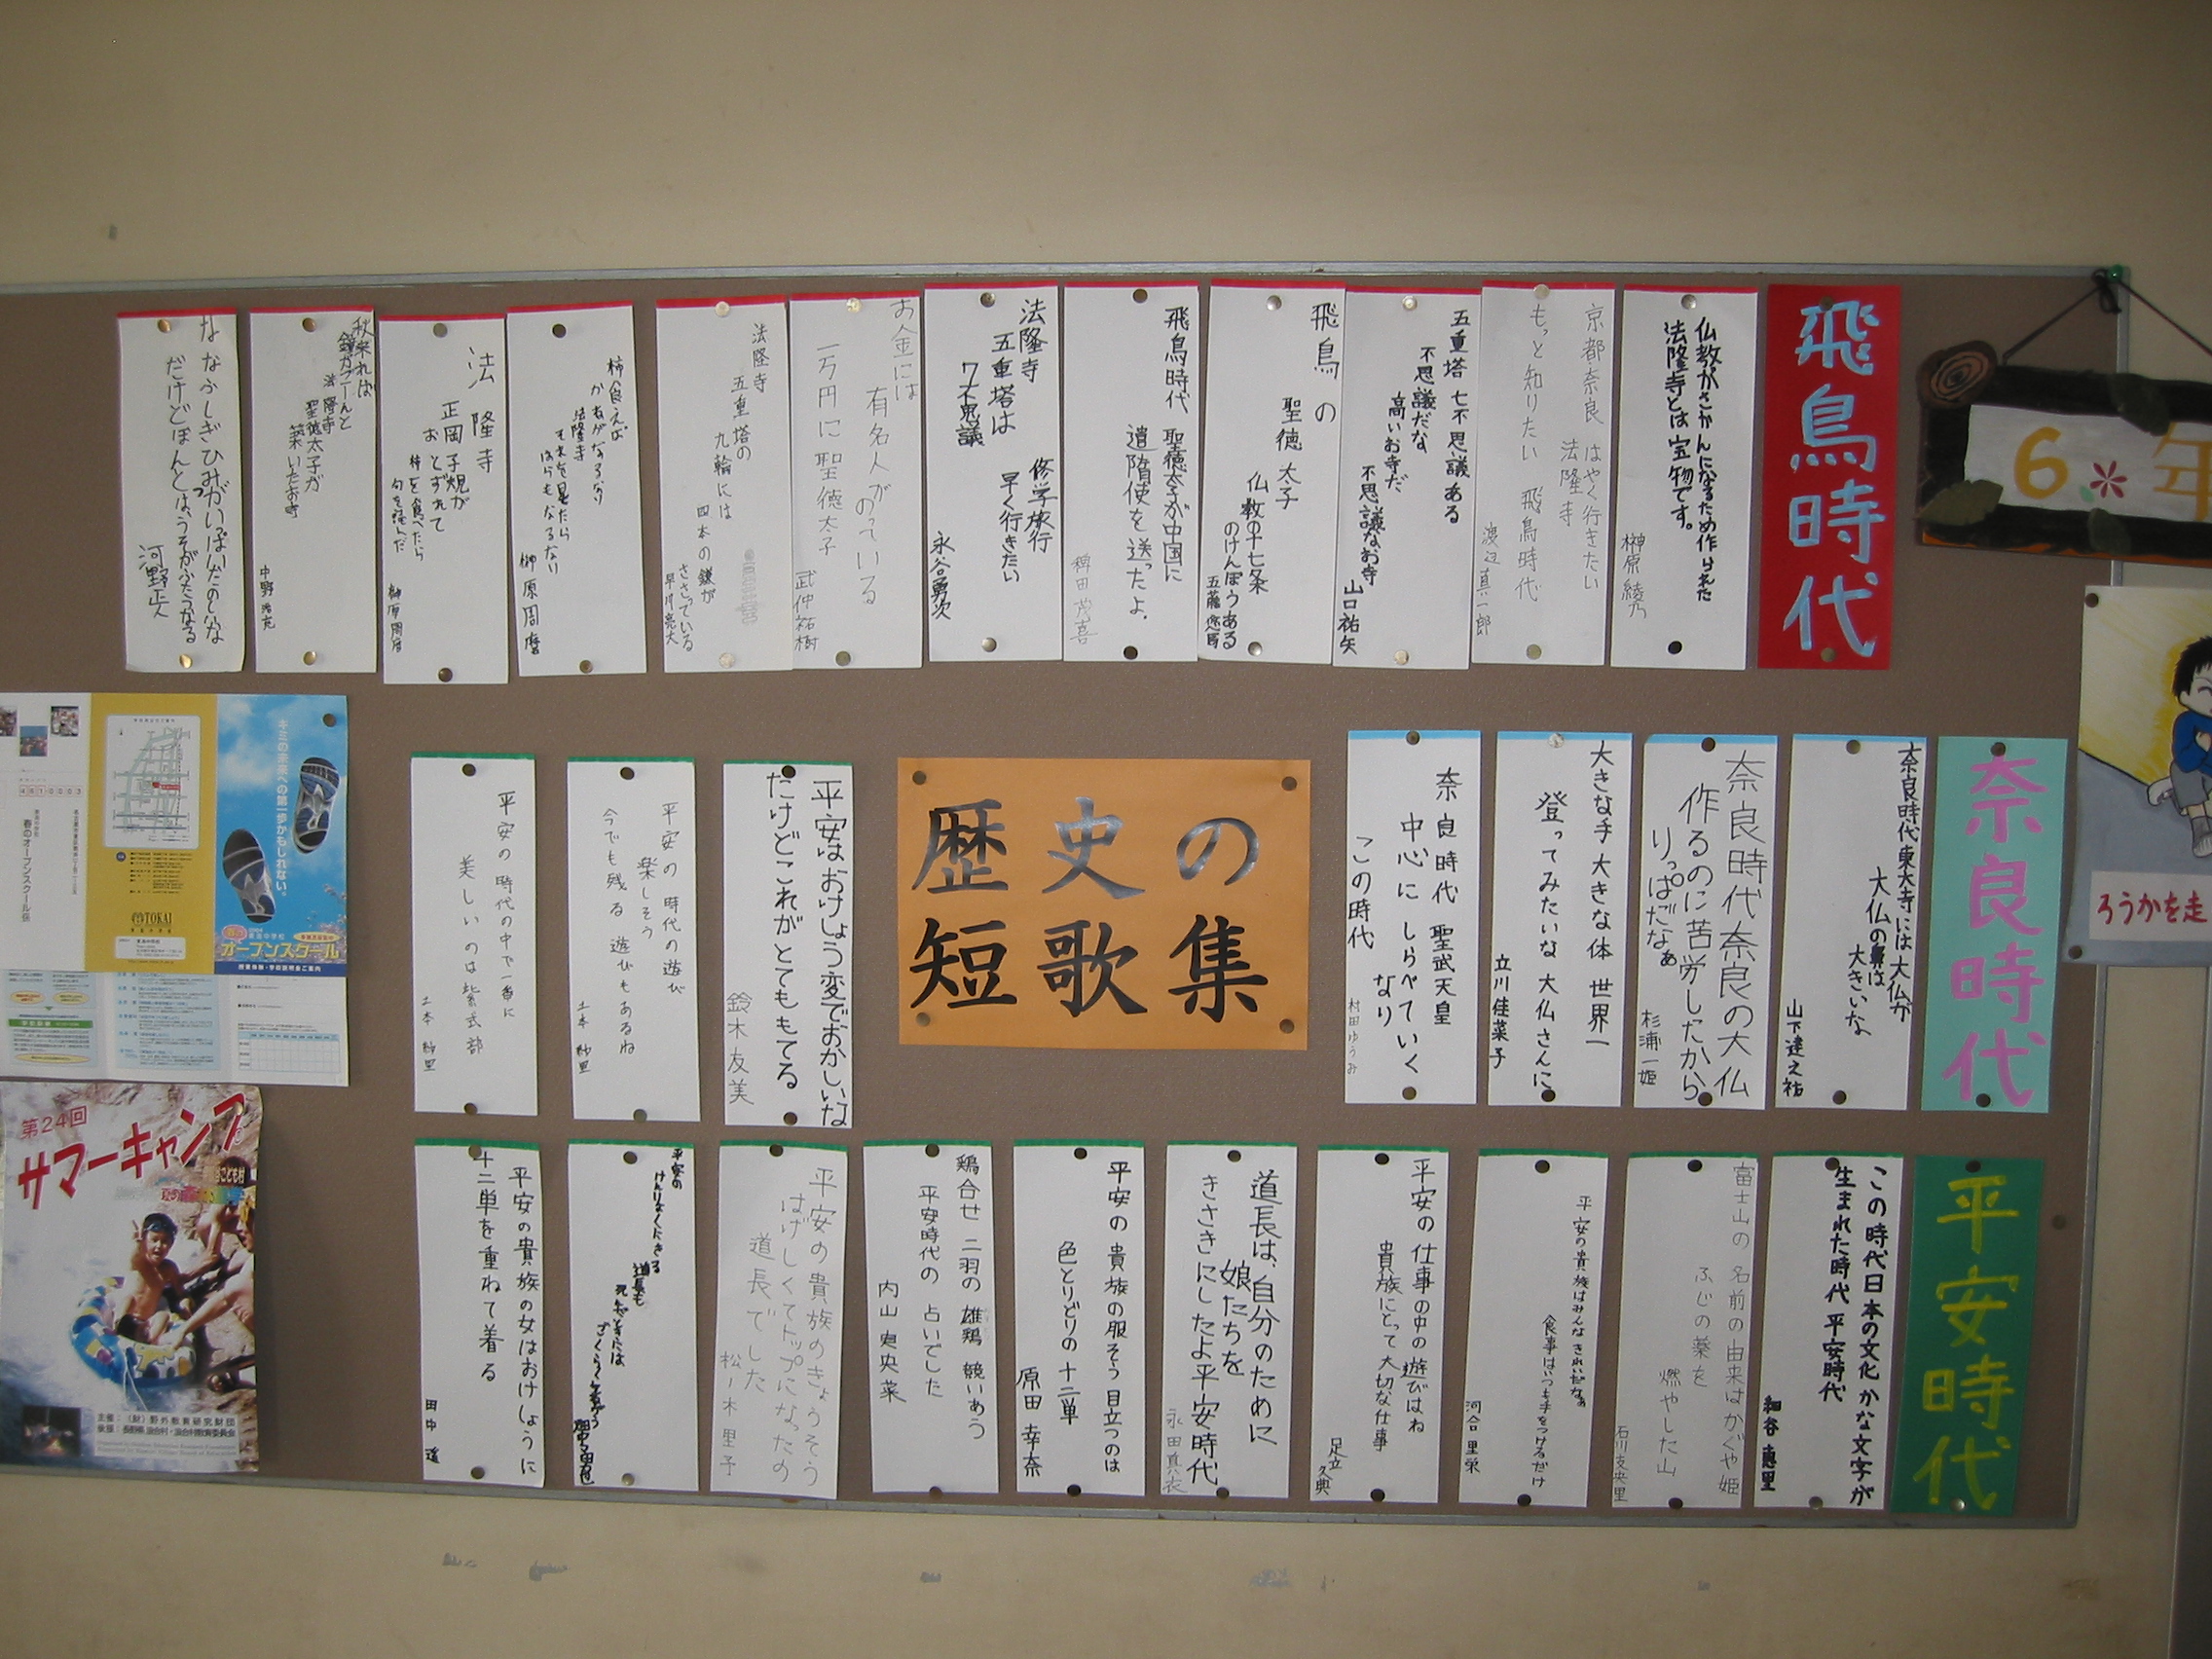 歴史の
短歌集
飛鳥時代
仏教がさかんになるため作られた
法隆寺とは宝物です。
榊原綾乃
京都奈良 はやく行きたい
法隆寺
もっと知りたい 飛鳥時代
渡辺真一郎
五重塔 七不思議ある
不思議だな
高いお寺だ
不思議なお寺
山口祐矢
飛鳥の
聖徳太子
仏教の十七条
のけんぽうある
飛鳥時代 聖徳太子が中国に
遣隋使を送ったよ.
稗田茂喜
法隆寺
五重塔は
7不思議
修学旅行
早く行きたい
永谷勇次
お金には
有名人が
のっている
一万円に聖徳太子
武仲祐樹
法隆寺
五重塔の
九輪には
四本の鎌が
ささっている
早川亮大
柿食えば
かねがなるなり
法隆寺
それを見たら
はらもなるなり
榊原周磨
法隆寺
正岡子規が
おとずれて
柿を食べたら
句を詠んだ
榊原周磨
秋来れば
鐘がゴーんと
法隆寺
聖徳太子が
築いたお寺
ななふしぎひみがいっぱいたのしいな
だけどほんとはうそがふたつある
河野正人
奈良時代
奈良時代東大寺には大仏が
大仏の鼻は
大きいな
山下達之祐
奈良時代奈良の大仏
作るのに苦労したから
りっぱだなぁ
杉浦一姫
大きな手 大きな体 世界一
登ってみたいな 大仏さんに
立川佳菜子
奈良時代 聖武天皇
中心に しらべていく
なり
この時代
村田ゆうみ
平安時代
この時代日本の文化かな文字が
生まれた時代 平安時代
細谷恵里
富士山の 名前の由来はかぐや姫
ふじの薬を
燃やした山
石川支央里
平安の貴族はみんなきれいだなぁ
食事はいつも手をつけるだけ
河合里栄
平安の仕事の中の遊びはね
貴族にとって大切な仕事
足立久典
道長は、自分のために
娘たちを
きさきにしたよ平安時代
永田真衣
平安の貴族の服そう目立つのは
色とりどりの十二単
原田幸奈
鶏合せ 二羽の雄鶏 競いあう
平安時代の 占いでした
内山実央菜
平安の貴族のきょうそう
はげしくてトップになったの
道長でした
松ノ木里予
平安の
けんりょくにぎる
道長も
平安の貴族の女はおけしょうに
十二単を重ねて着る
田中遥
平安はおけしょう変でおかしいな
だけどこれがとてももてる
鈴木友美
平安の時代の遊び
楽しそう
今でも残る 遊びもあるね
土本紗里
平安の時代の中で一番に
美しいのは紫式部
土本紗里
6年
ろうかを走
キミの未来への第一歩かもしれない。
オープンスクール
TOKAI
春のオープンスクール係
第24回
サマーキャンプ
主催:(財)野外教育研究財団